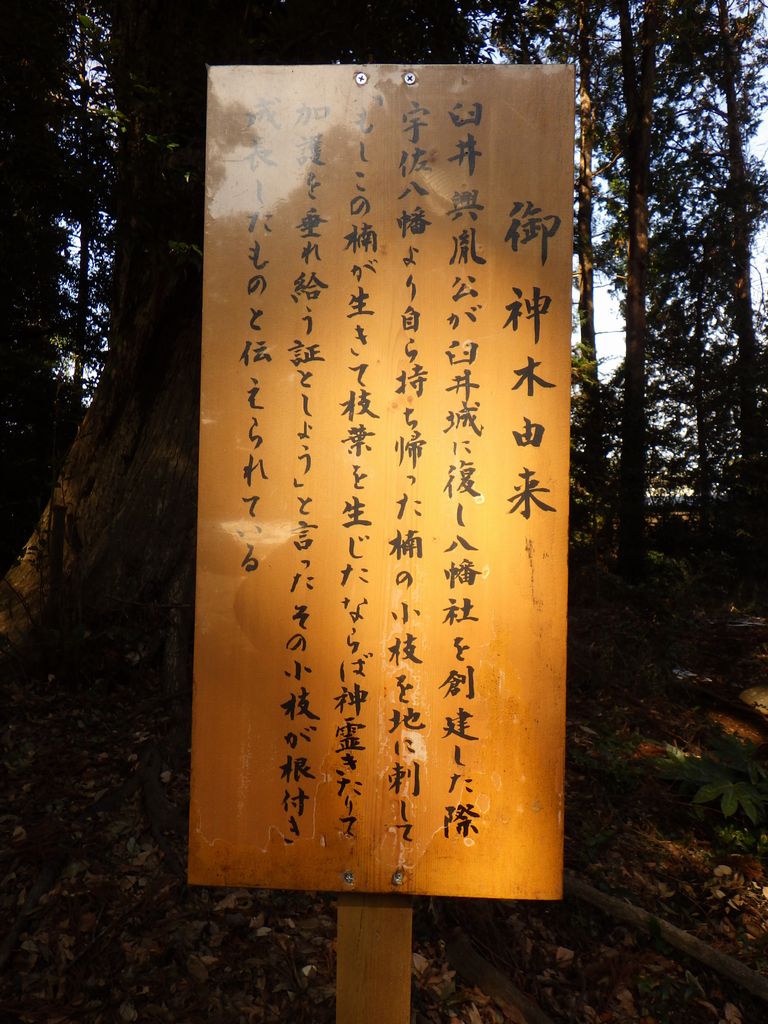 御神木由来
臼井興胤公が臼井城に復し八幡社を創建した際
宇佐八幡より自ら持ち帰った楠の小枝を地に刺して
「もしこの楠が生きて枝葉を生じたならば神霊きたりて
加護を垂れ給う証としよう」と言ったその小枝が根付き
成長したものと伝えられている